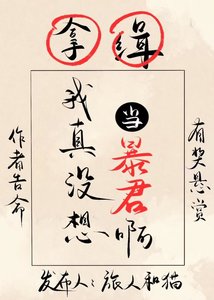 缉拿
有奖悬赏
我真没想
当暴君啊
作者告命
发布人：旅人和猫